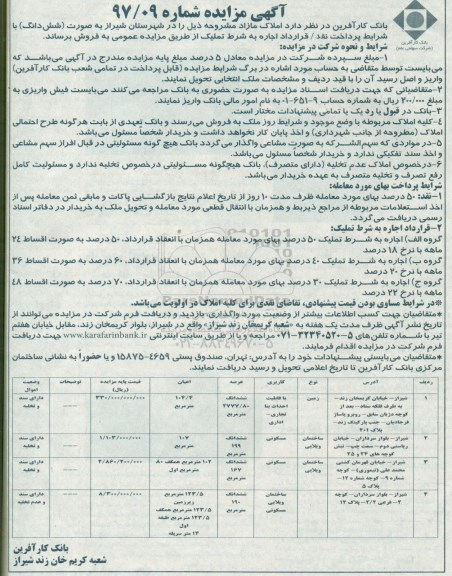 آگهی مزایده شماره ۹۷/۰۹
بانک کارآفرین
بانک کارآفرین در نظر دارد املاک مازاد مشروحه ذیل را در شهرستان شیراز به صورت (شش دانگ) با
شرایط پرداخت نقد / قرارداد اجاره به شرط تملیک از طریق مزایده عمومی به فروش برساند.
شرایط و نحوه شرکت در مزایده:
۱-مبلغ سپرده شرکت در مزایده معادل ۵ درصد مبلغ پایه مزایده مندرج در آگهی می‌باشد که
می‌بایست توسط متقاضی به حساب مورد اشاره در برگ شرایط مزایده (قابل پرداخت در تمامی شعب بانک کارآفرین)
واریز و اصل رسید آن را با قید ردیف و مشخصات ملک انتخابی تحویل نمایند.
۲-متقاضیانی که جهت دریافت اسناد مزایده به صورت حضوری به بانک مراجعه می‌کنند می‌بایست فیش واریزی به
مبلغ ۲۰۰/۰۰۰ ریال به شماره حساب به نام امور مالی بانک واریز نمایند.
۳-بانک در قبول یا رد یک یا تمامی پیشنهادات مختار است.
۴-کلیه املاک مربوطه با وضع موجود و شرایط روز ملک به فروش می‌رسند و بانک تعهدی از بابت هرگونه طرح احتمالی
املاک (مطروحه از جانب شهرداری) و اخذ پایان کار نخواهد داشت و خریدار شخصاً مسئول می‌باشد.
۵-در مواردی که سهم‌الشرکه به صورت مشاعی واگذار می‌گردد بانک هیچ گونه مسئولیتی در قبال افراز سهم مشاعی
و اخذ سند تفکیکی ندارد و خریدار شخصاً مسئول می‌باشد.
۶-درخصوص املاک عدم تخلیه (دارای متصرف)، بانک هیچگونه مسئولیتی درخصوص تخلیه ندارد و مسئولیت کامل
رفع تصرف و تخلیه متصرف به عهده خریدار می‌باشد.
شرایط پرداخت بهای مورد معامله:
۱-نقد: ۵۰ درصد بهای مورد معامله ظرف مدت ۱۰ روز از تاریخ اعلام نتایج بازگشایی پاکات و مابقی ثمن معامله پس از
اخذ استعلامات مربوطه از مراجع ذیربط و همزمان با انتقال قطعی مورد معامله و تحویل ملک به خریدار در دفاتر اسناد
رسمی دریافت می‌گردد.
۲-قرارداد اجاره به شرط تملیک:
گروه الف) اجاره به شرط تملیک ۵۰ درصد بهای مورد معامله همزمان با انعقاد قرارداد، ۵۰ درصد به صورت اقساط ۲۴
ماهه با نرخ ۱۸ درصد
گروه ب) اجاره به شرط تملیک ۴۰ درصد بهای مورد معامله همزمان با انعقاد قرارداد، ۶۰ درصد به صورت اقساط ۳۶
ماهه با نرخ ۲۰ درصد
گروه ج) اجاره به شرط تملیک ۳۰ درصد بهای مورد معامله همزمان با انعقاد قرارداد، ۷۰ درصد به صورت اقساط ۴۸
ماهه با نرخ ۲۲ درصد
*در شرایط مساوی بودن قیمت پیشنهادی، تقاضای نقدی برای کلیه املاک در اولویت می‌باشد.
*متقاضیان جهت کسب اطلاعات بیشتر از وضعیت مورد واگذاری، بازدید و دریافت فرم شرکت در مزایده می‌توانند از
تاریخ نشر آگهی ظرف مدت یک هفته به «شعبه کریمخان زند شیراز» واقع در شیراز، بلوار کریمخان زند، مقابل خیابان هفتم
تیر با شماره تلفن‌های مراجعه و یا از طریق سایت اینترنتی www.karafarinbank.ir جهت دریافت
فرم شرکت در مزایده اقدام فرمایند.
*متقاضیان می‌بایستی پیشنهادات خود را به آدرس: تهران، صندوق پستی ۴۶۵۹-۱۵۸۷۵ و یا حضوراً به نشانی ساختمان
مرکزی بانک کارآفرین تا تاریخ اعلامی تحویل و رسید دریافت نمایند.
ردیف آدرس نوع کاربری عرصه اعیان قیمت پایه مزایده (ریال) توضیحات وضعیت اموال
۱ شیراز- خیابان کریمخان زند- به طرف فلکه ستاد- بعد از کوچه دژبان سابق- روبرو پاساژ فرجادیان- جنب پارکینگ زند- پلاک زمین با قابلیت احداث بنا تجاری- اداری ششدانگ ۲۷۷۷/۸۰ مترمربع ۱۰۲/۴ مترمربع ۳۳۰/۰۰۰/۰۰۰/۰۰۰ دارای سند و تخلیه
۲ شیراز- بلوار سرداران- خیابان ریاستی دوم- سمت چپ- نبش کوچه های ۲۴ و ۲۵ ساختمان ویلایی مسکونی ششدانگ ۱۹۹ مترمربع ۱۰۷ مترمربع ۱/۱۰۳/۰۰۰/۰۰۰ دارای سند و تخلیه
۳ شیراز- خیابان قهرمان کشتی محمد علی (تیموری)- کوچه شماره ۹- کوچه شماره ۱۲- پلاک ۵ ساختمان ویلایی مسکونی ششدانگ ۱۶۷ مترمربع ۱۰۲ مترمربع همکف ۸۰ مترمربع اول ۴/۸۶۰/۳۰۰/۰۰۰ دارای سند و تخلیه
شیراز- بلوار سرداران- کوچه پلاک ۱۲ ساختمان ویلایی مسکونی ششدانگ ۱۹۰ مترمربع ۱۲۳/۵ مترمربع زیرزمین ۱۲۳/۵ مترمربع همکف ۱۲۳/۵ مترمربع طبقه اول ۸/۳۰۰/۰۰۰/۰۰۰ دارای سند و عدم تخلیه
بانک کارآفرین
شعبه کریم خان زند شیراز